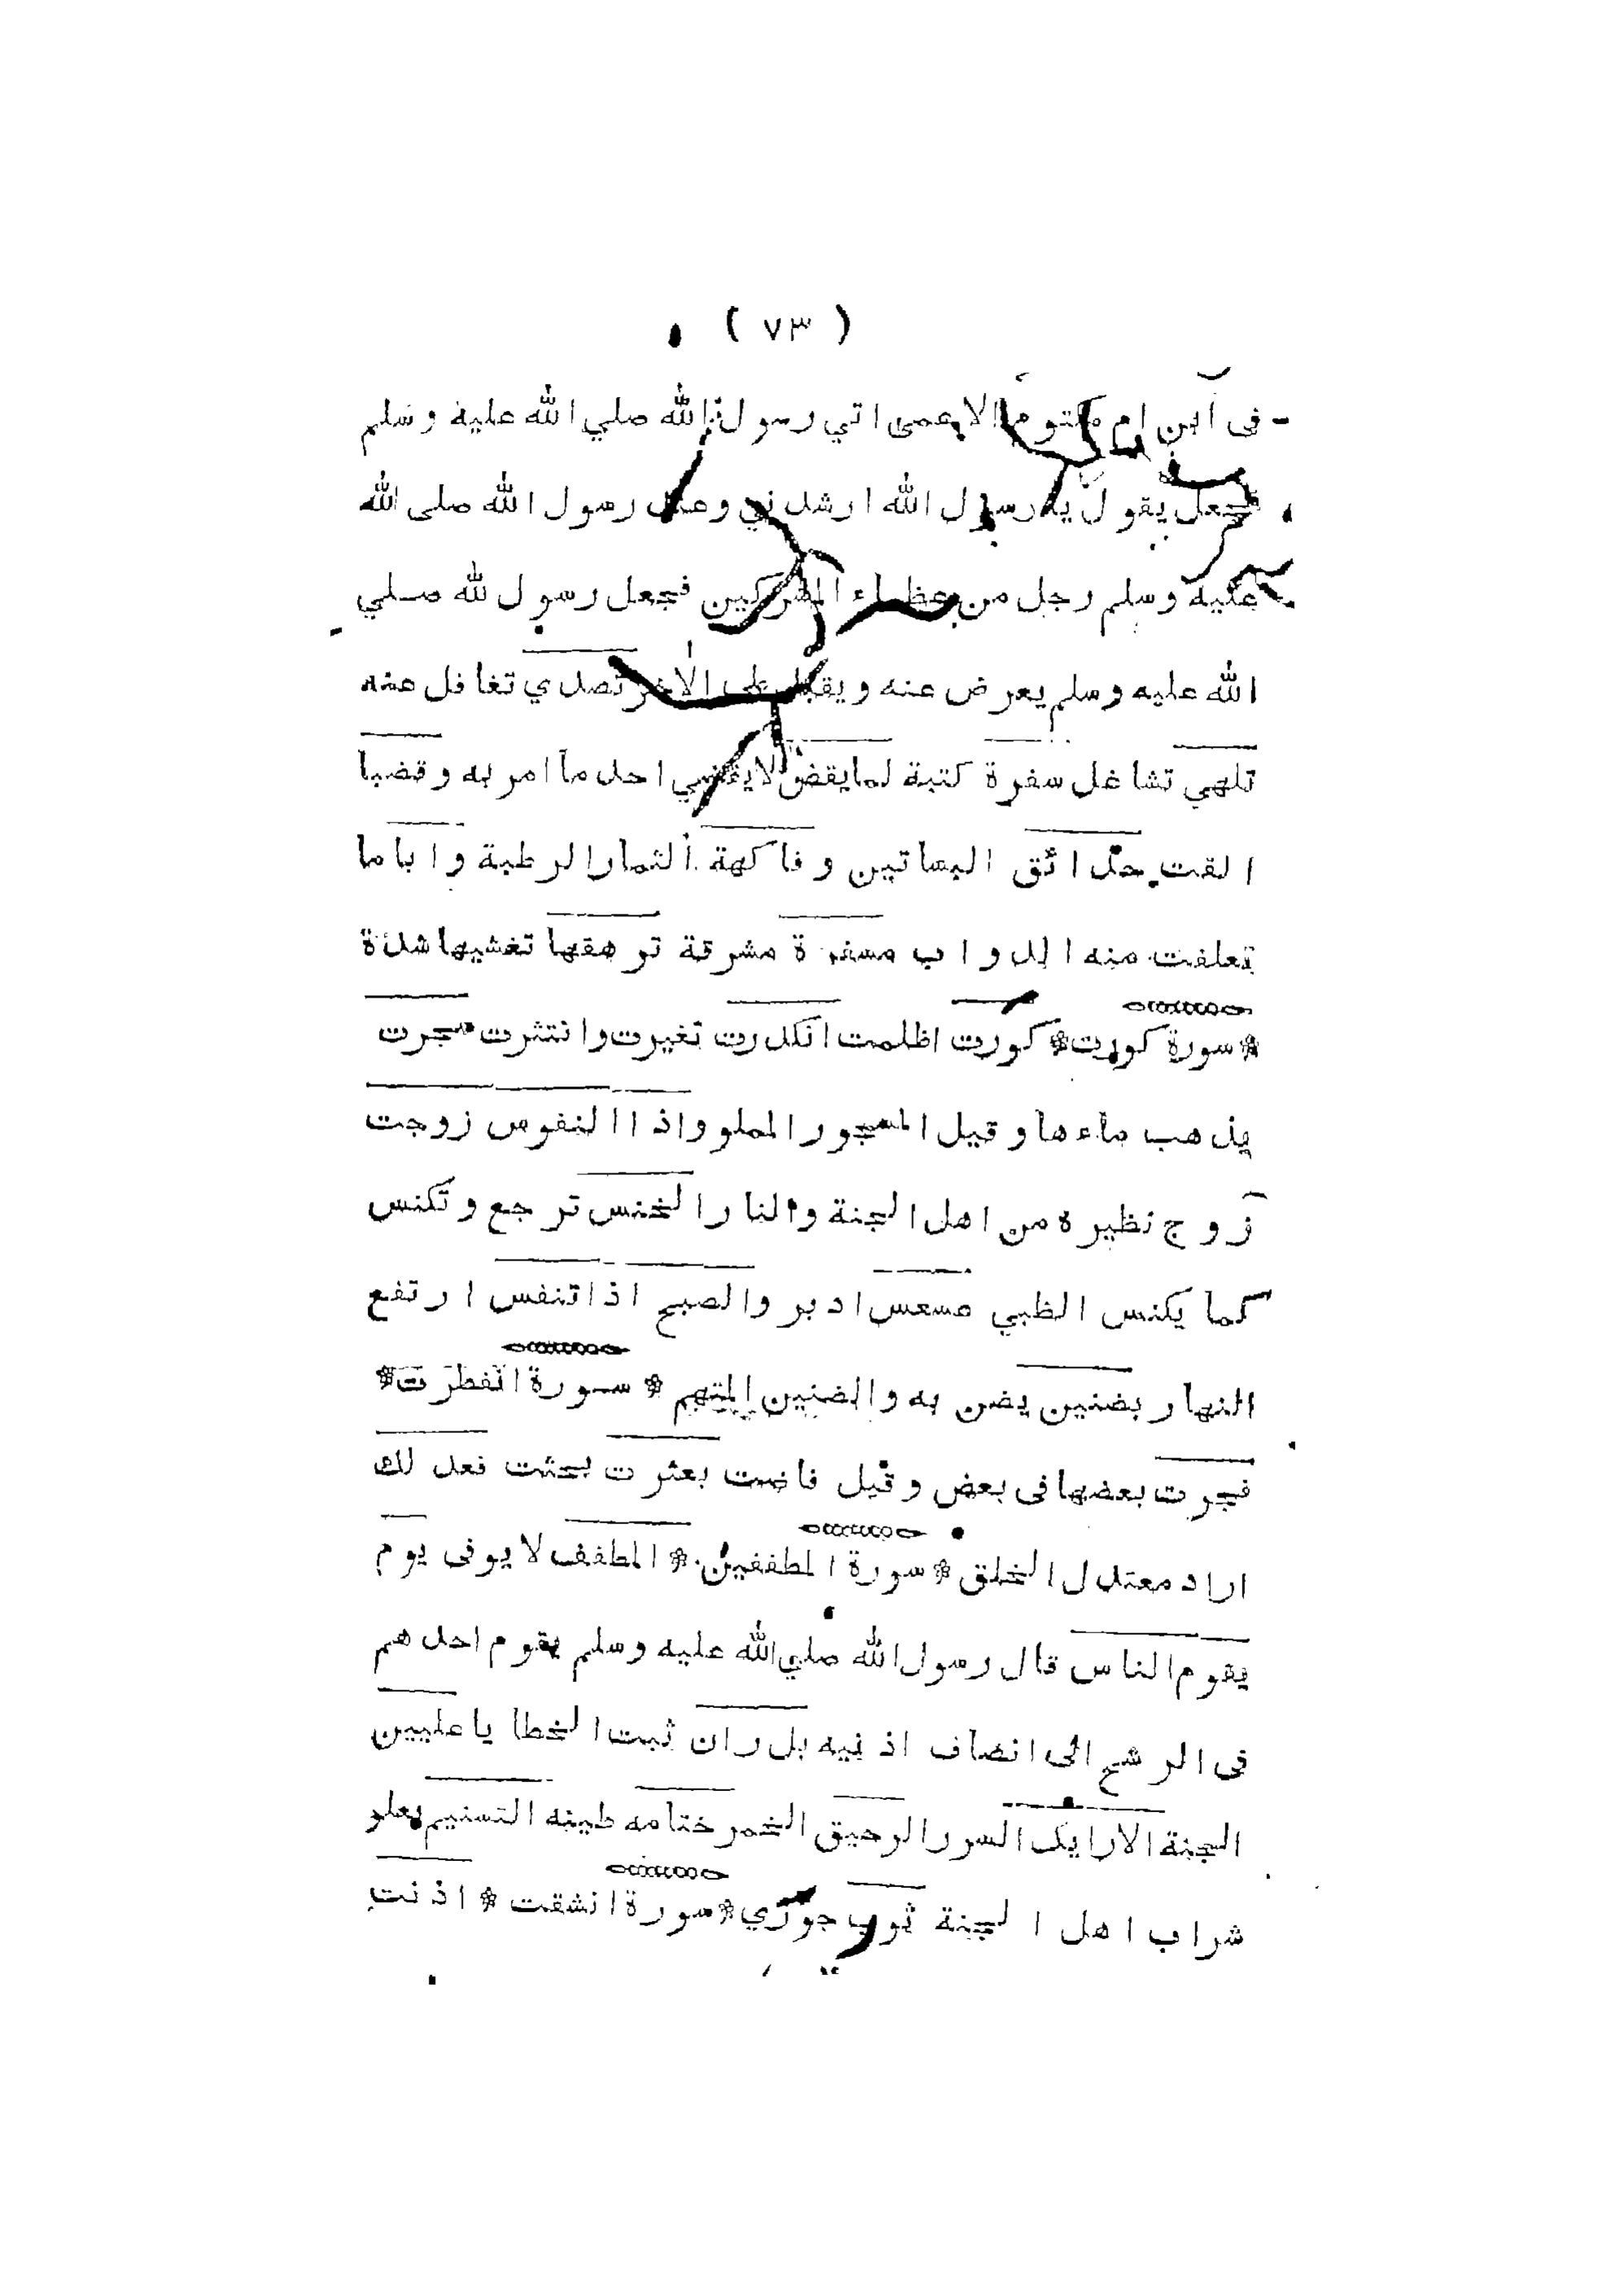 ( ٧٣ )
فى ابن ام مكتوم الاعمى اتي رسول الله صلي الله عليه وسلم
فجعل يقول يا رسول الله ارشدني وعند رسول الله صلى الله
عليه وسلم رجل من عظماء المشركين فجعل رسول لله صلي
الله عليه وسلم يعرض عنه ويقبل على الاخر تصدي تغافل عنه
تلهي تشاغل سفرة كتبة لمايقض لايقضي احد ما امر به وقضبا
القت حدائق البساتين وفاكهة الثمار الرطبة وابا ما
تعلفت منه الدواب مسفرة مشرقة ترهقها تغشيها شدة
* سورة كورت * كورت اظلمت انكدرت تغيرت وانتثرت سجرت
يذهب ماءها وقيل المسجور المملو واذا النفوس زوجت
زوج نظيره من اهل الجنة والنار الخنس ترجع وتكنس
كما يكنس الظبي عسعس ادبر والصبح اذا تنفس ارتفع
النهار بضنين يضن به والضنين المتهم * سورة انفطرت *
فجرت بعضها فى بعض وقيل فاضت بعثرت بحثت فعدلك
اراد معتدل الخلق * سورة المطففين * المطفف لا يوفى يوم
يقوم الناس قال رسول الله صلي الله عليه وسلم يقوم احدهم
فى الرشح الى انصاف اذنيه بل ران ثبت الخطايا عليين
الجنة الارايك السرر الرحيق الخمر ختامه طينه التسنيم يعلو
شراب اهل الجنة ثوب جوزي * سورة انشقت * اذنت